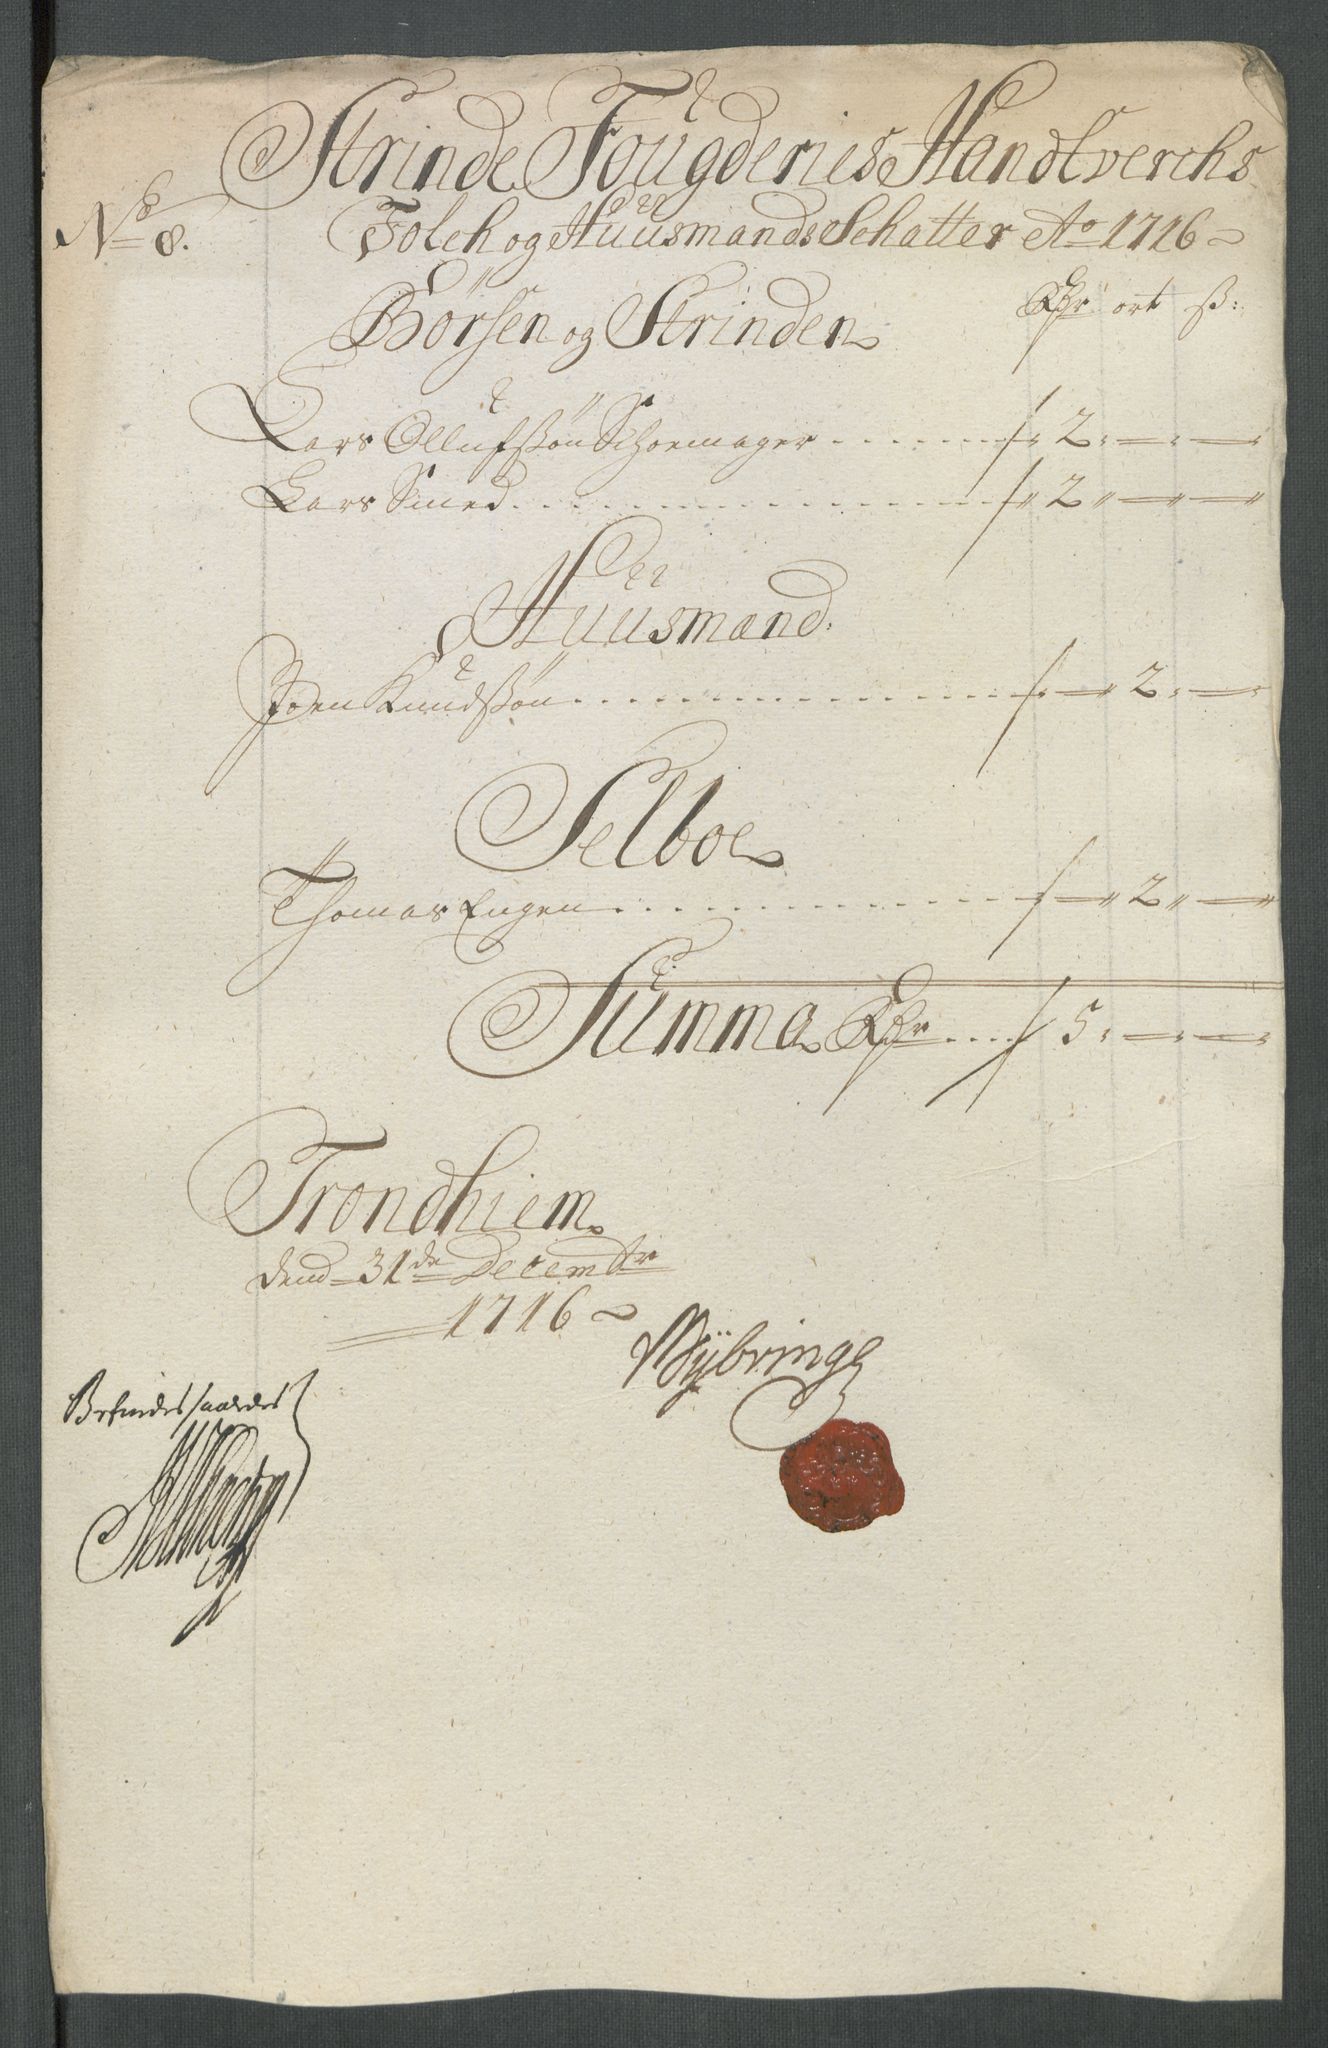 Strinde Fougderies Handtverchs
No 8. Folch og Huusmands Schatter Ao 1716
Börsen og Strinden Rdr ort ß:
Lars Ollufssøn Schoemager 2 " — " —
Lars Smed 2 " — " —
Huusmænd:
Joen Knudssøn — " 2 " —
Selboe
Thomas Engen — " 2 " —
Summa Rdr 5 " — " —
Trondhiem
dend 31de Decembr
1716
Nÿbring
Befindes saaledes